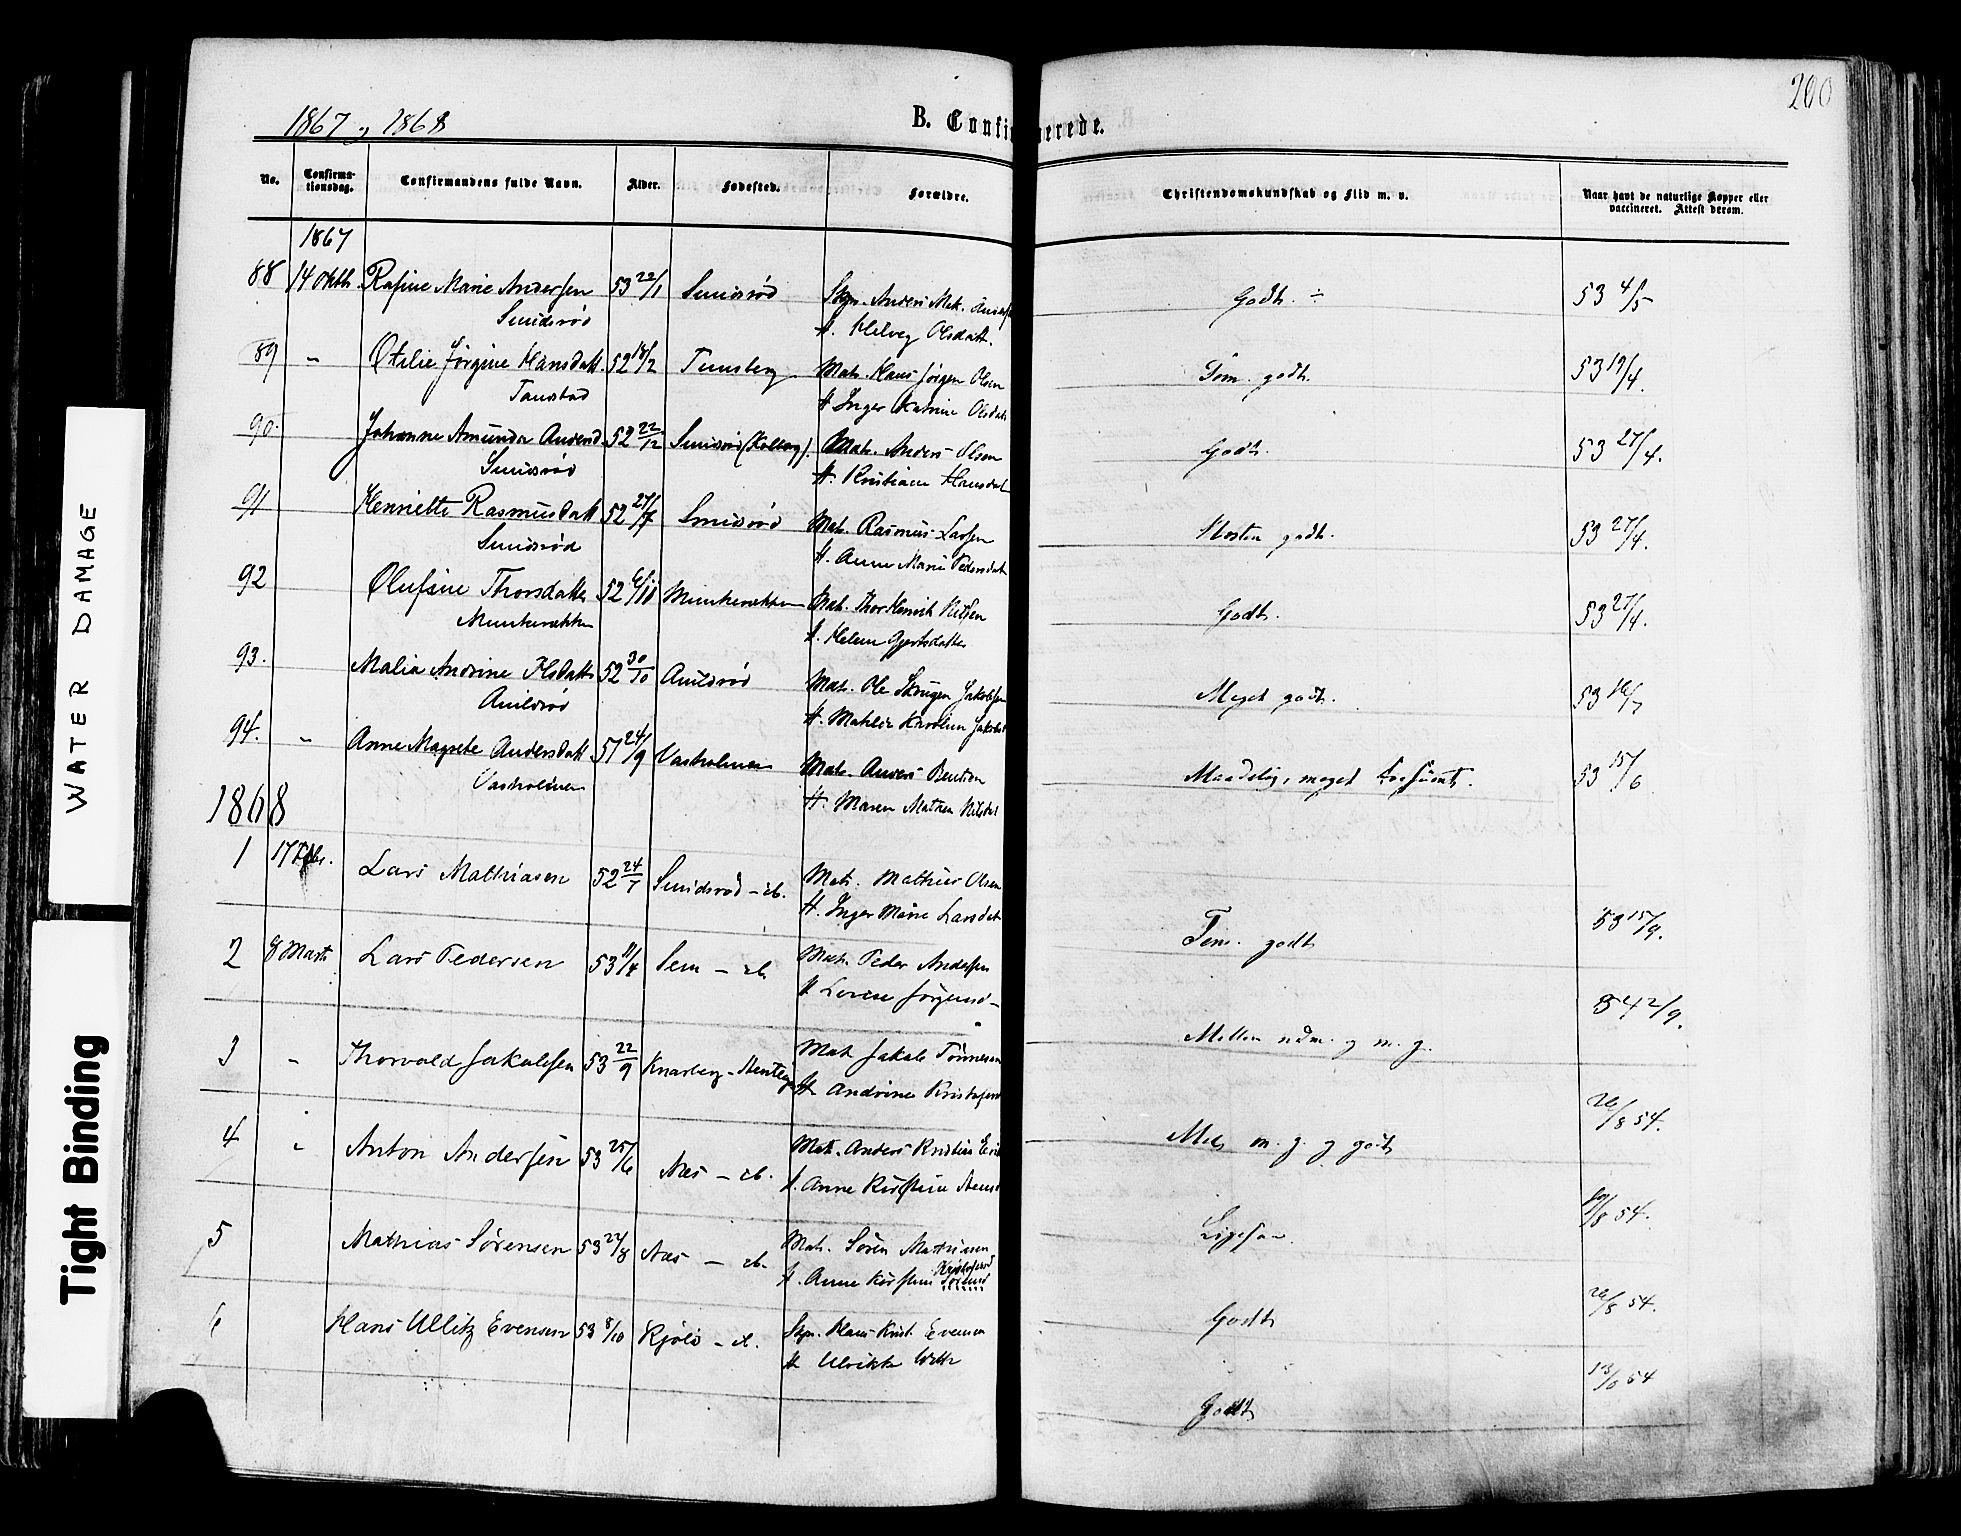 WATER DAMAGE
Tight Binding
200
1867 og 1868
B. Confirmerede.
No.
Confirma-
tionsdag.
Confirmandens fulde Navn.
Alder.
Fødested.
Forældre.
Christendomskundskab og Flid m. v.
Naar havt de naturlige Kopper eller
vaccineret. Attest derom.
1867
88 14 Oktb. Rafine Marie Andersen 53 22/1 Smidsrød Skpr. Anders Mat. Anders Godt. ÷ 53 4/5
Smidsrød H. Helveg Olsdatt.
89 " Otilie Jørgine Hansdatt. 52 18/2 Tunsberg Mat. Hans Jørgen Olsen Tem. godt. 53 19/4.
H Inger Katrine Olsdatt
90. Johanne Amunda Andersd. 52 22/12 Smidsrød Mat. Anders Olsen Godt. 53 27/4.
Smidsrød H. Kristiane Hansdat
91 Henriette Rasmusdatt 52 27/7 Smidsrød Mat. Rasmus Larsen Næsten godt. 53 27/4.
Smidsrød H. Anne Marie Pedersdat
92 Olufine Thorsdatter 52 6/11 Munkerekken Mat. Thor Henrik Nilsen Godt. 53 27/4.
Munkerekken H. Helene Gjertsdatter
93. Malia Andrine Olsdatt 52 30/10 Amildrød Mat. Ole Skougen Jakobsen Meget godt. 53 16/7
Amildrød H. Mathea Karoline Jakobs
94. " Anne Magrete Andersdatt 51 24/9 Vasholmen Mat. Anders Bentsen Maadelig, meget forsømt. 53 15/6
Vasholmen H. Maren Mathea Nilsdat
1868
1 17 Febr. Lars Mathiasen 52 24/7 Smidsrød - eb. Mat. Mathias Olsen Tem. godt 53 15/9.
H. Inger Marie Larsdat
2 8 Marts Lars Pedersen 53 11/4 Sem - eb. Mat. Peder Andersen Mellem udm. og m. g. 54 2/9.
H Lovise Jørgensd-
3 " Thorvald Jakobsen 53 22/9 Knarberg - Mat Jakob Tønnesen Mel. m. g. og godt 26/8 54.
H Andrine Kristofers
4 " Anton Andersen 53 25/6 Næs - eb. Mat. Anders Kristian Ligesaa. 29/8 54.
H. Anne Kirstine
5 Mathias Sørensen 53 24/8 Næs - eb. Mat. Søren Mathisen Godt 26/8 54.
H. Anne Kirstine Kristofersd
6 Hans Ullitz Evensen 53 8/10 Kjøle - eb. Skpr. Hans Krist. Evensen Godt 13/6 54
H Ulrikke